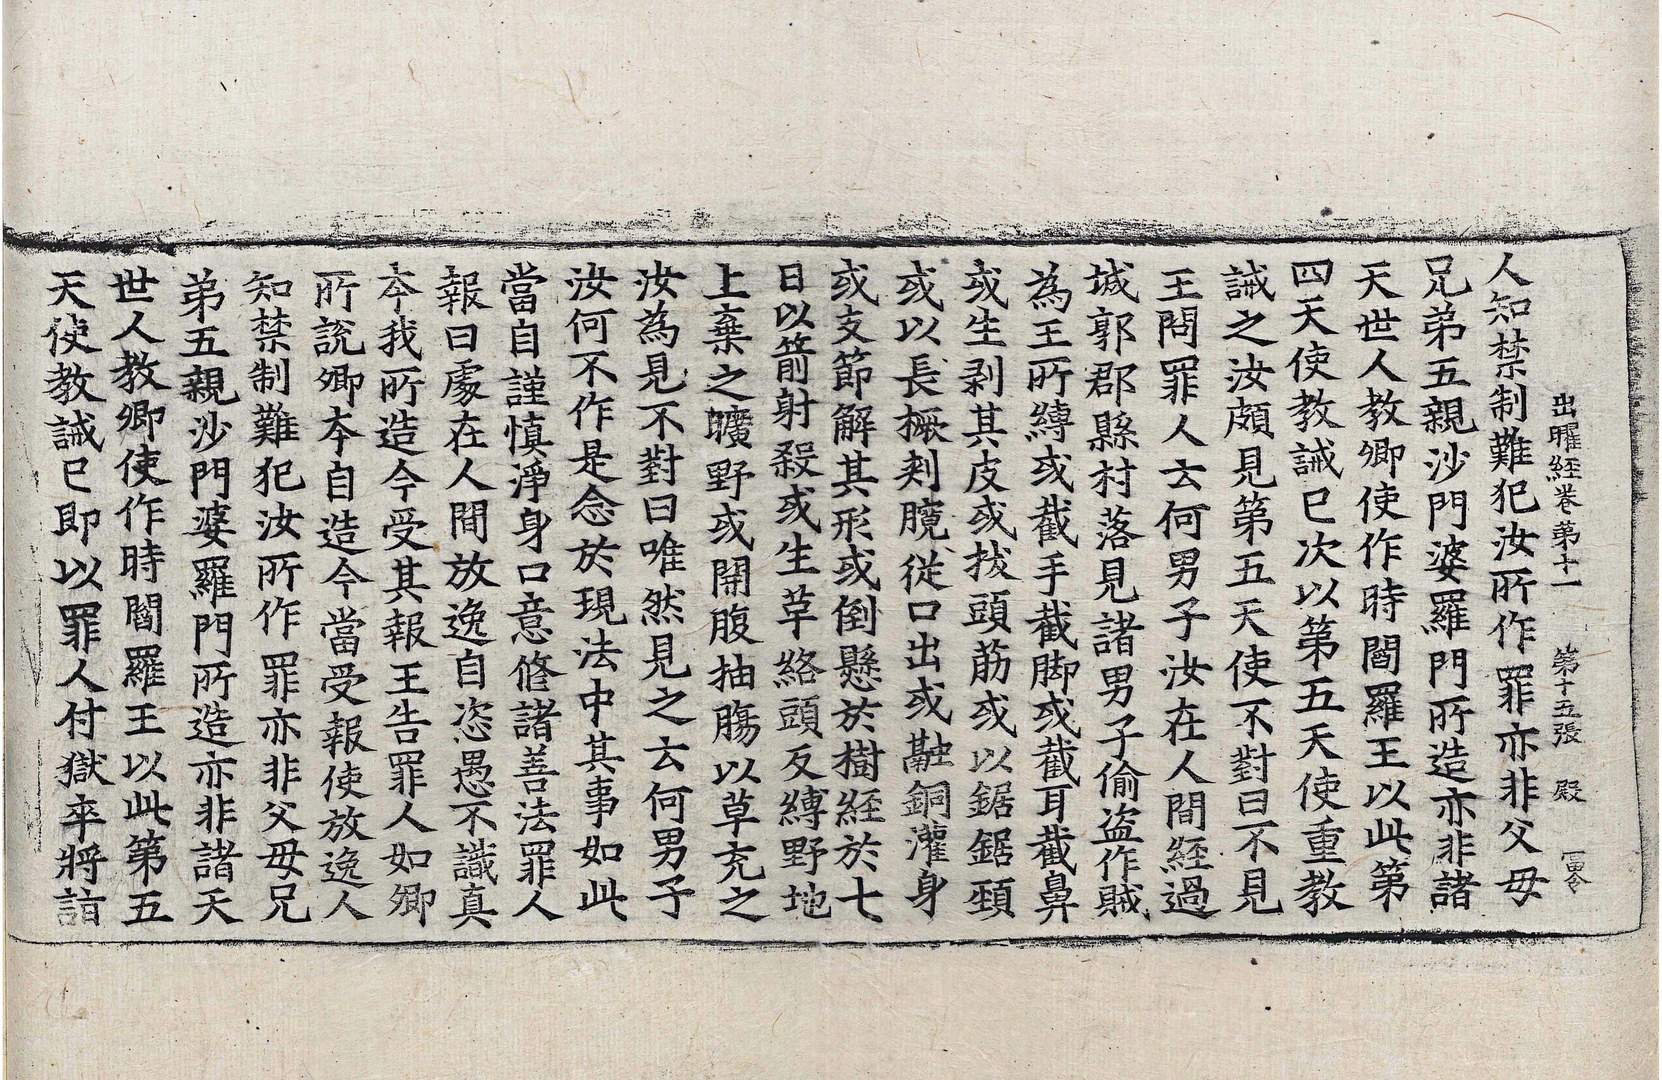 出曜經卷第十一 第十五張 殿 冨令
人知禁制難犯汝所作罪亦非父母
兄弟五親沙門婆羅門所造亦非諸
天世人教卿使作時閻羅王以此第
四天使教誡已次以第五天使重教
誡之汝頗見第五天使不對曰不見
王問罪人云何男子汝在人間經過
城郭郡縣村落見諸男子偷盜作賊
為王所縛或截手截脚或截耳截鼻
或生剥其皮或拔頭筋或以鋸鋸頸
或以長橛剡臗從口出或融銅灌身
或支節解其形或倒懸於樹經於七
日以箭射殺或生草絡頭反縛野地
上棄之曠野或開腹抽膓以草充之
汝為見不對曰唯然見之云何男子
汝何不作是念於現法中其事如此
當自謹慎淨身口意修諸善法罪人
報曰處在人間放逸自恣愚不識真
今我所造今受其報王告罪人如卿
所説卿本自造今當受報使放逸人
知禁制難犯汝所作罪亦非父母兄
弟五親沙門婆羅門所造亦非諸天
世人教卿使作時閻羅王以此第五
天使教誡已即以罪人付獄卒將詣